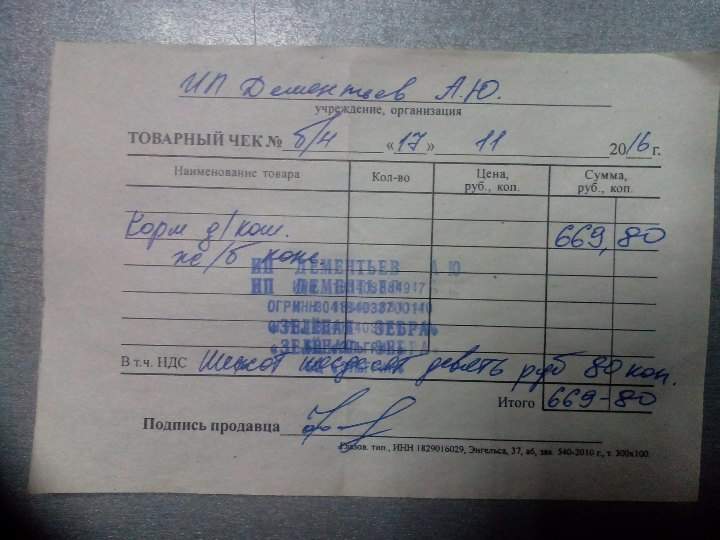 ИП Дементьев А.Ю.
учреждение, организация
ТОВАРНЫЙ ЧЕК № б/н «17» 11 2016 г.
Наименование товара Кол-во Цена, руб., коп. Сумма, руб., коп.
Корм д/кош. 669,80
ж/б кош.
ИП ДЕМЕНТЬЕВ А Ю
ИП ДЕМЕНТЬЕВ
ОГРН
«ЗЕЛЁНАЯ ЗЕБРА»
«ЗЕЛЁНАЯ ЗЕБРА»
В т.ч. НДС Шестьсот шестьдесят девять руб 80 коп.
Итого 669-80
Подпись продавца
Глазов. тип., ИНН 1829016029, Энгельса, 37, аб, зак. 540-2010 г., т. 300х100.